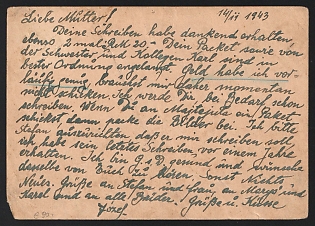 14/IX 1943
Liebe Mutter!
Deine Schreiben habe dankend erhalten,
ebenso 2 mal RM. 20.- Dein Packet sowie von
der Schwester und Kollegen Karl sind in
bester Ordnung angelangt. Geld habe ich vor-
läufig genug, brauchst mir daher momentan
nicht schicken. Ich werde Dir bei Bedarf schon
schreiben. Wenn Du an ein Paket
schickst dann packe die Bilder bei. Ich bitte
Stefan auszurichten, daß er mir schreiben soll,
ich habe sein letztes Schreiben vor einem Jahre
erhalten. Ich bin G.s.D. gesund und wünsche
dasselbe von Euch zu hören. Sonst nichts
Neues. Grüße an Stefan und Frau, an und
Karol und an alle Grüße u. Küsse
Józef